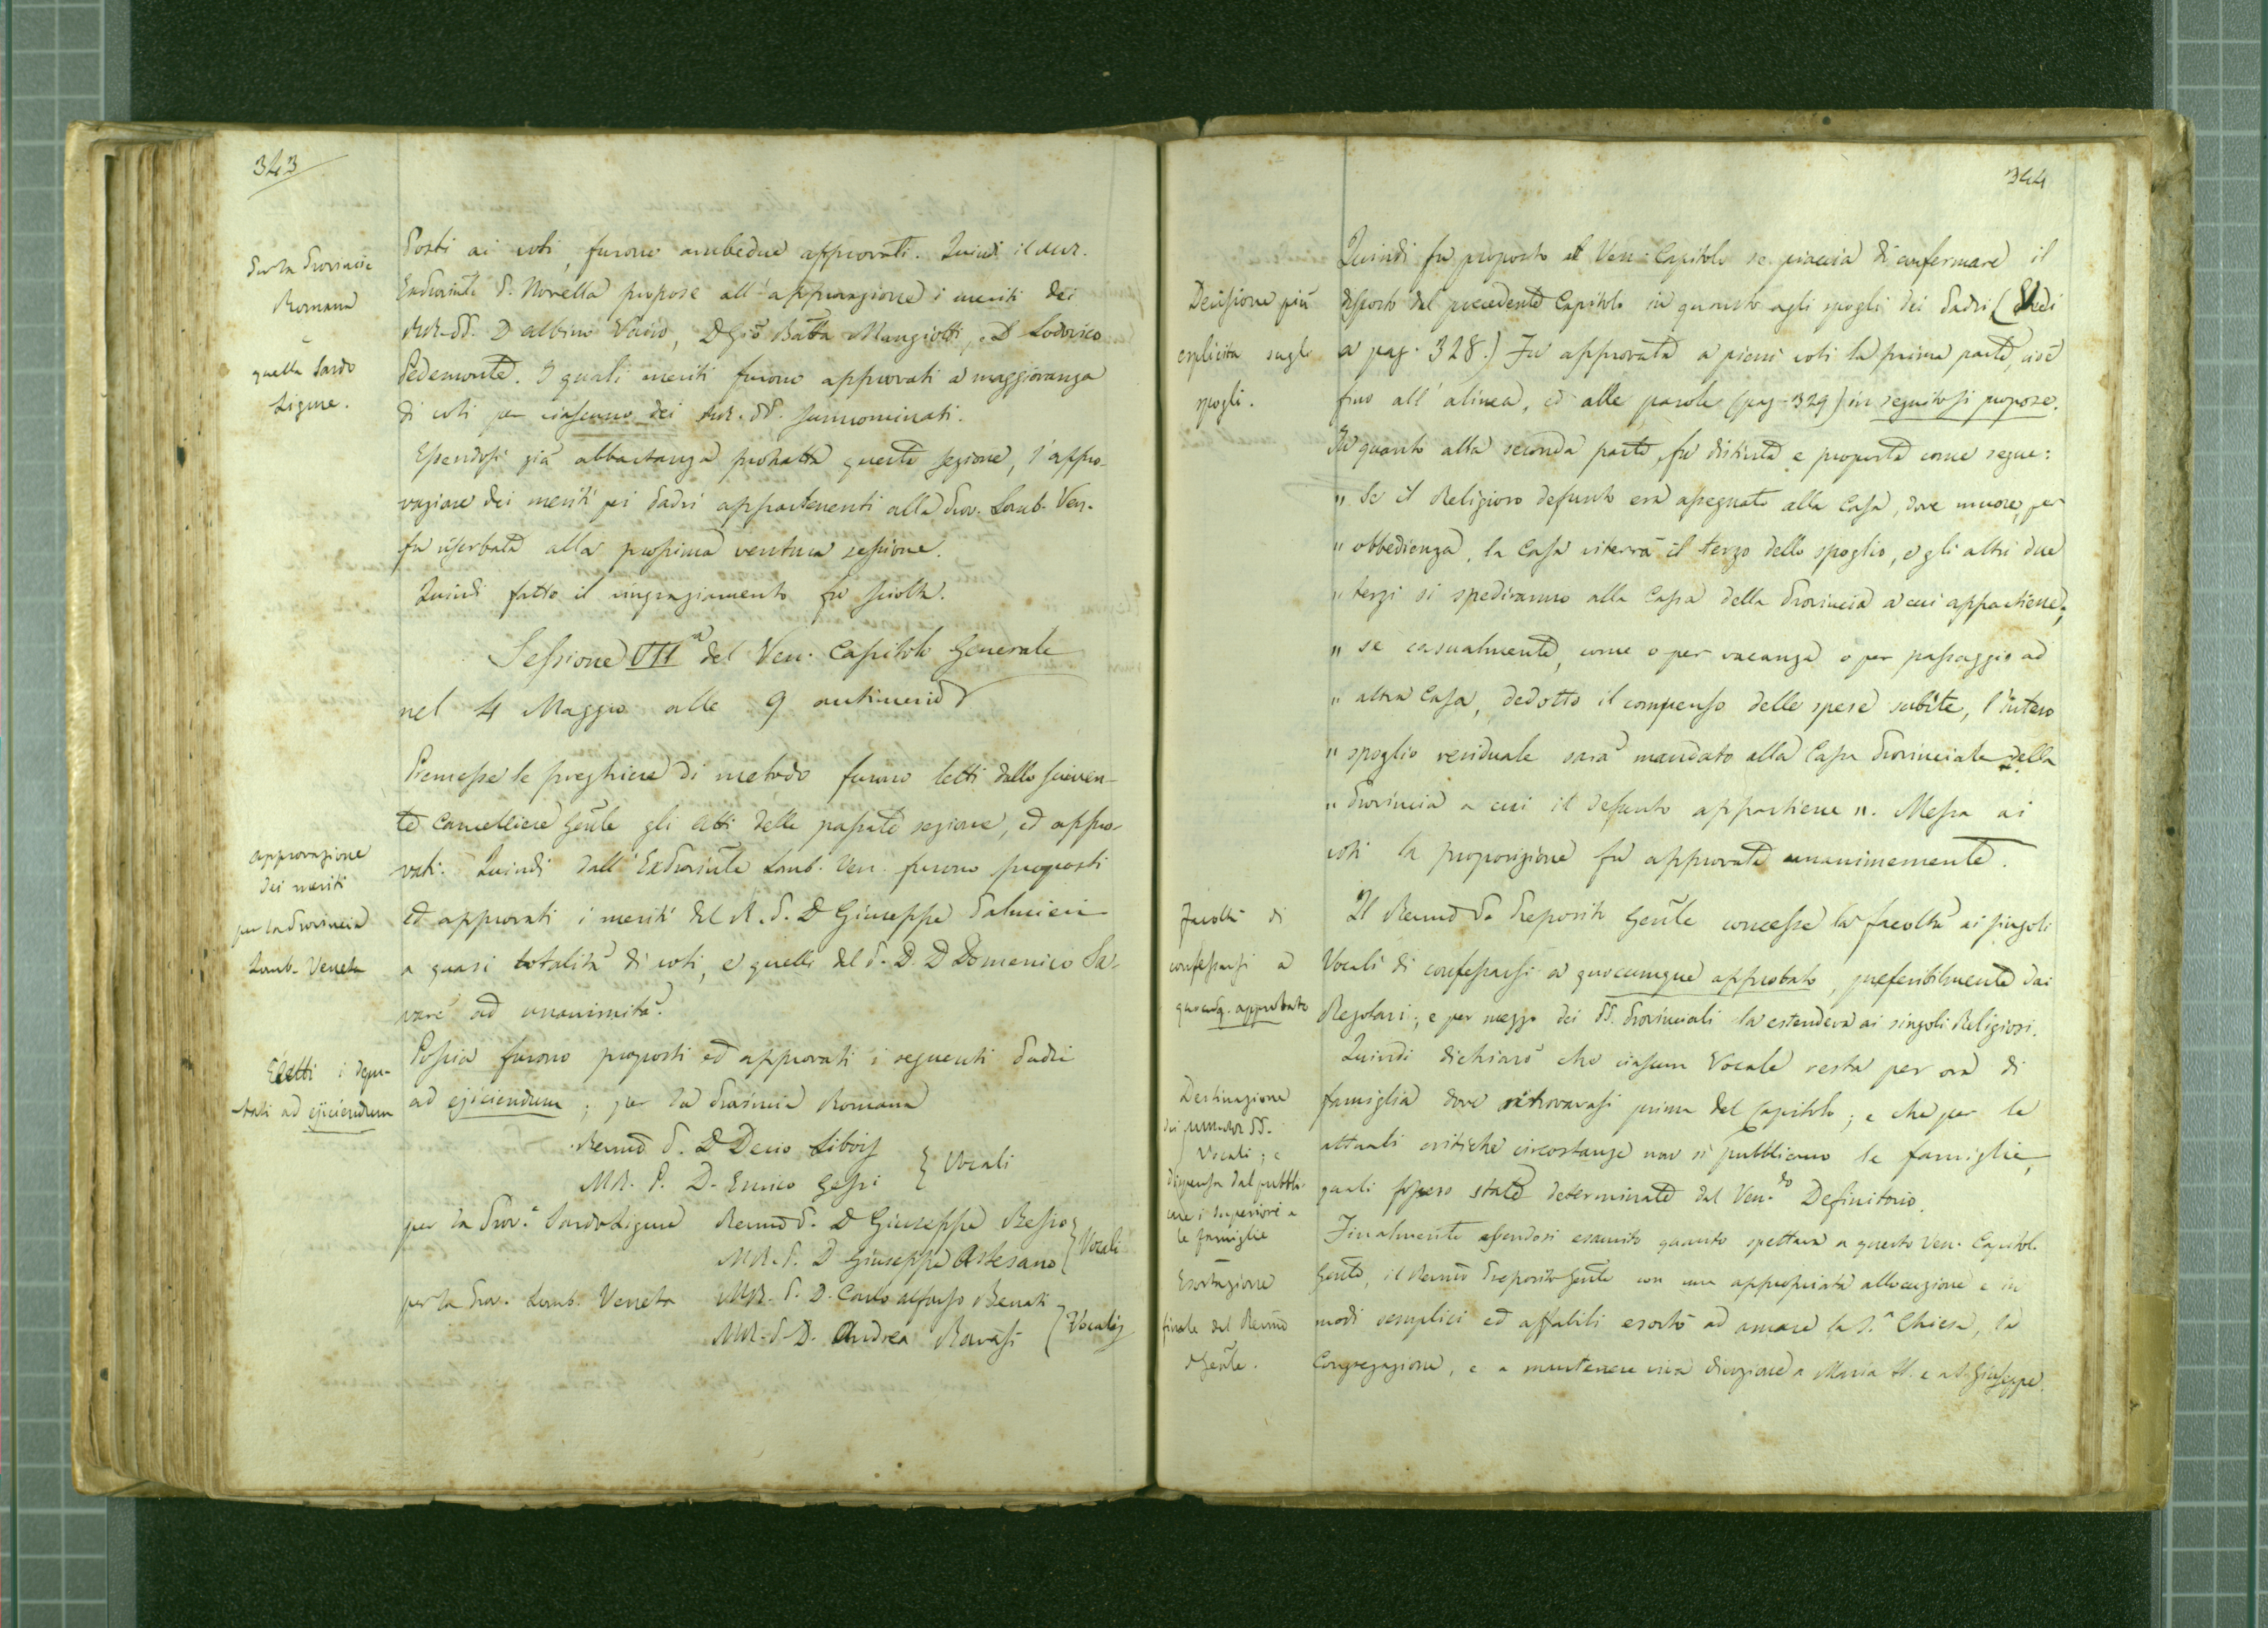 343
Per la Provincia
Romana
e
quella Sardo
Ligure.
Posti ai voti, furono ambedue approvati. Quindi il M.R.
ExProvinle P. Novella propose all'approvazione i meriti dei
MM.RR. PP. D Albino Vairo, D Gio Batta Mangiotti, e D Lodovico
Pedemonte. I quali meriti furono approvati a maggioranza
di voti per ciascuno dei M.R. PP. sunnominati.
Essendosi già abbastanza protratta questa sezione, l'appro-
vazione dei meriti pei Padri appartenenti alla Prov. Lomb. Ven.
fu riserbata alla prossima ventura sessione.
Quindi fatto il ringraziamento fu sciolta.
Sessione VIIa del Ven. Capitolo Generale
nel 4 Maggio alle 9 antimerid
Premesse le preghiere di metodo furono letti dallo scriven-
te Cancelliere Genle gli Atti della passata sezione, ed appro-
vati. Quindi dall'ExProvinle Lomb. Ven. furono proposti
ed approvati i meriti del R. P. D Giuseppe Palmieri
a quasi totalità di voti, e quelli del P. D. D Domenico Sa-
vare ad unanimità.
approvazione
dei meriti
per la Provincia
Lomb. Veneta
Poscia furono proposti ed approvati i seguenti Padri
ad ejiciendum; per la Provincia Romana
Eletti i depu-
tati ad ejiciendum
Revmo P. D Decio Libois
M.R. P. D. Enrico Gessi } Vocali
per la Prov.a Sardo Ligure Revmo P. D Giuseppe Besio
M.R. P. D Giuseppe Artesano } Vocali
per la Prov. Lomb. Veneta M.R. P. D. Carlo Alfonso Benati
M.R. P. D. Andrea Ravasi } Vocali
344
Decisione più
esplicita sugli
spogli.
Quindi fu proposto al Ven. Capitolo se piaccia di confermare il
disposto dal precedente Capitolo in quanto agli spogli dei Padri (Vedi
a pag. 328.) Fu approvata a pieni voti la prima parte, cioè
fino all'alinea, ed alle parole (pag. 329) in seguito si propose.
In quanto alla seconda parte, fu distinta e proposta come segue:
" Se il Religioso defunto era assegnato alla Casa, dove muore, per
" obbedienza, la Casa riterrà il terzo dello spoglio, e gli altri due
" terzi si spediranno alla Cassa della Provincia a cui appartiene;
" se casualmente, come o per vacanza o per passaggio ad
" altra Casa, dedotto il compenso delle spese subite, l'intero
" spoglio residuale sarà mandato alla Cassa Provinciale della
" Provincia a cui il defunto appartiene ". Messa ai
voti la proposizione fu approvata unanimemente.
Facoltà di
confessarsi a
quocunq. approbato
Il Revmo Pe Preposito Genle concesse la facoltà ai singoli
Vocali di confessarsi a quocumque approbato, preferibilmente dai
Regolari; e per mezzo dei PP. Provinciali la estendeva ai singoli Religiosi.
Destinazione
dei PP.
Vocali; e
dispensa dal pubbli-
care i superiori e
le famiglie
Quindi dichiarò che ciascun Vocale resta per ora di
famiglia dove ritrovavasi prima del Capitolo; e che per le
attuali critiche circostanze non si pubblicano le famiglie,
quali fossero state determinate dal Ven.do Definitorio.
Esortazione
finale del Revmo
Pgenle.
Finalmente essendosi esaurito quanto spettava a questo Ven. Capitolo
Genle, il Revmo Preposito Genle con una appropriata allocuzione e in
modi semplici ed affabili esortò ad amare la S.a Chiesa, la
Congregazione, e a mantenere viva divozione a Maria SS. e a S. Giuseppe.